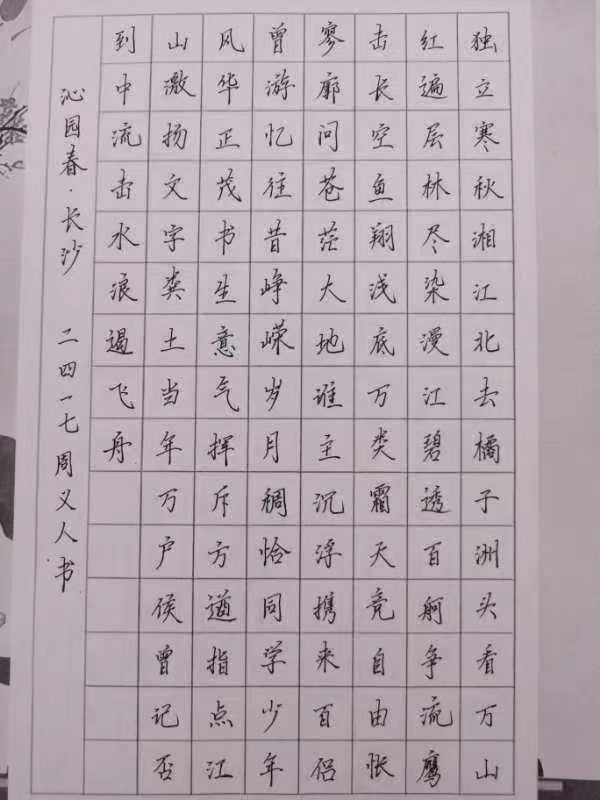 独立寒秋湘江北去橘子洲头看万山
红遍层林尽染漫江碧透百舸争流鹰
击长空鱼翔浅底万类霜天竞自由怅
寥廓问苍茫大地谁主沉浮携来百侣
曾游忆往昔峥嵘岁月稠恰同学少年
风华正茂书生意气挥斥方遒指点江
山激扬文字粪土当年万户侯曾记否
到中流击水浪遏飞舟
沁园春·长沙 二四一七周义人书